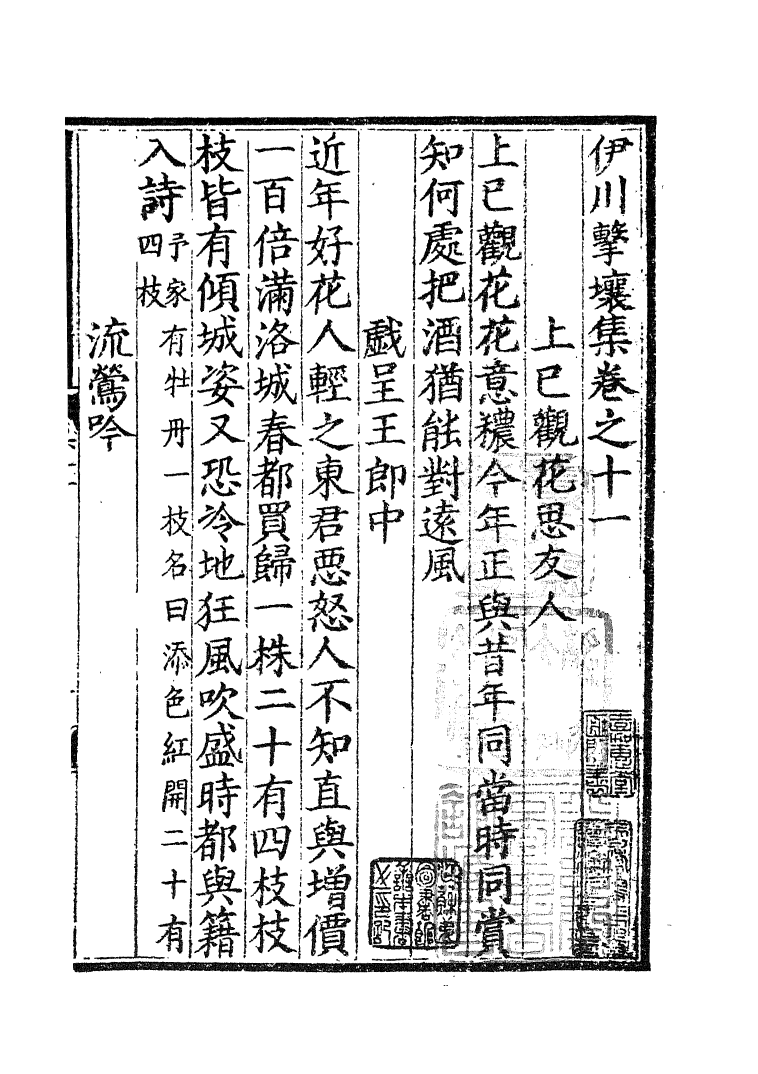 伊川擊壤集卷之十一
上巳觀花思友人
上巳觀花花意穠今年正與昔年同當時同賞
知何處把酒猶能對遠風
戲呈王郎中
近年好花人輕之東君惡怒人不知直與增價
一百倍滿洛城春都買歸一株二十有四枝枝
枝皆有傾城姿又恐冷地狂風吹盛時都與籍
入詩予家有牡丹一枝名曰添色紅開二十有四枝
流鶯吟